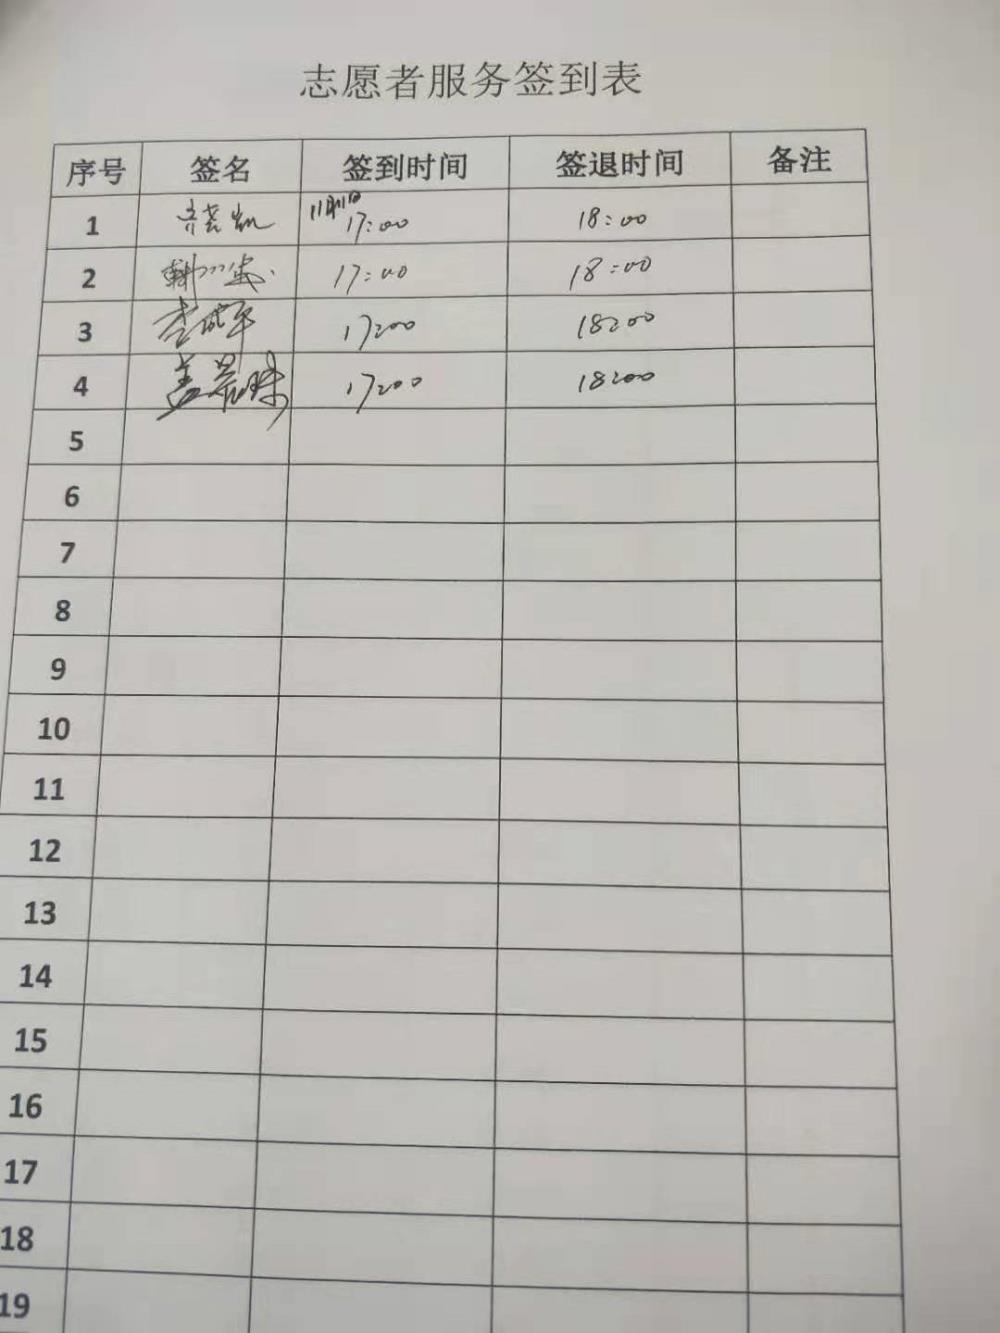 志愿者服务签到表
序号 签名 签到时间 签退时间 备注
1 11月11日 17:00 18:00
2 17:00 18:00
3 李成军 17:00 18:00
4 17:00 18:00
5
6
7
8
9
10
11
12
13
14
15
16
17
18
19